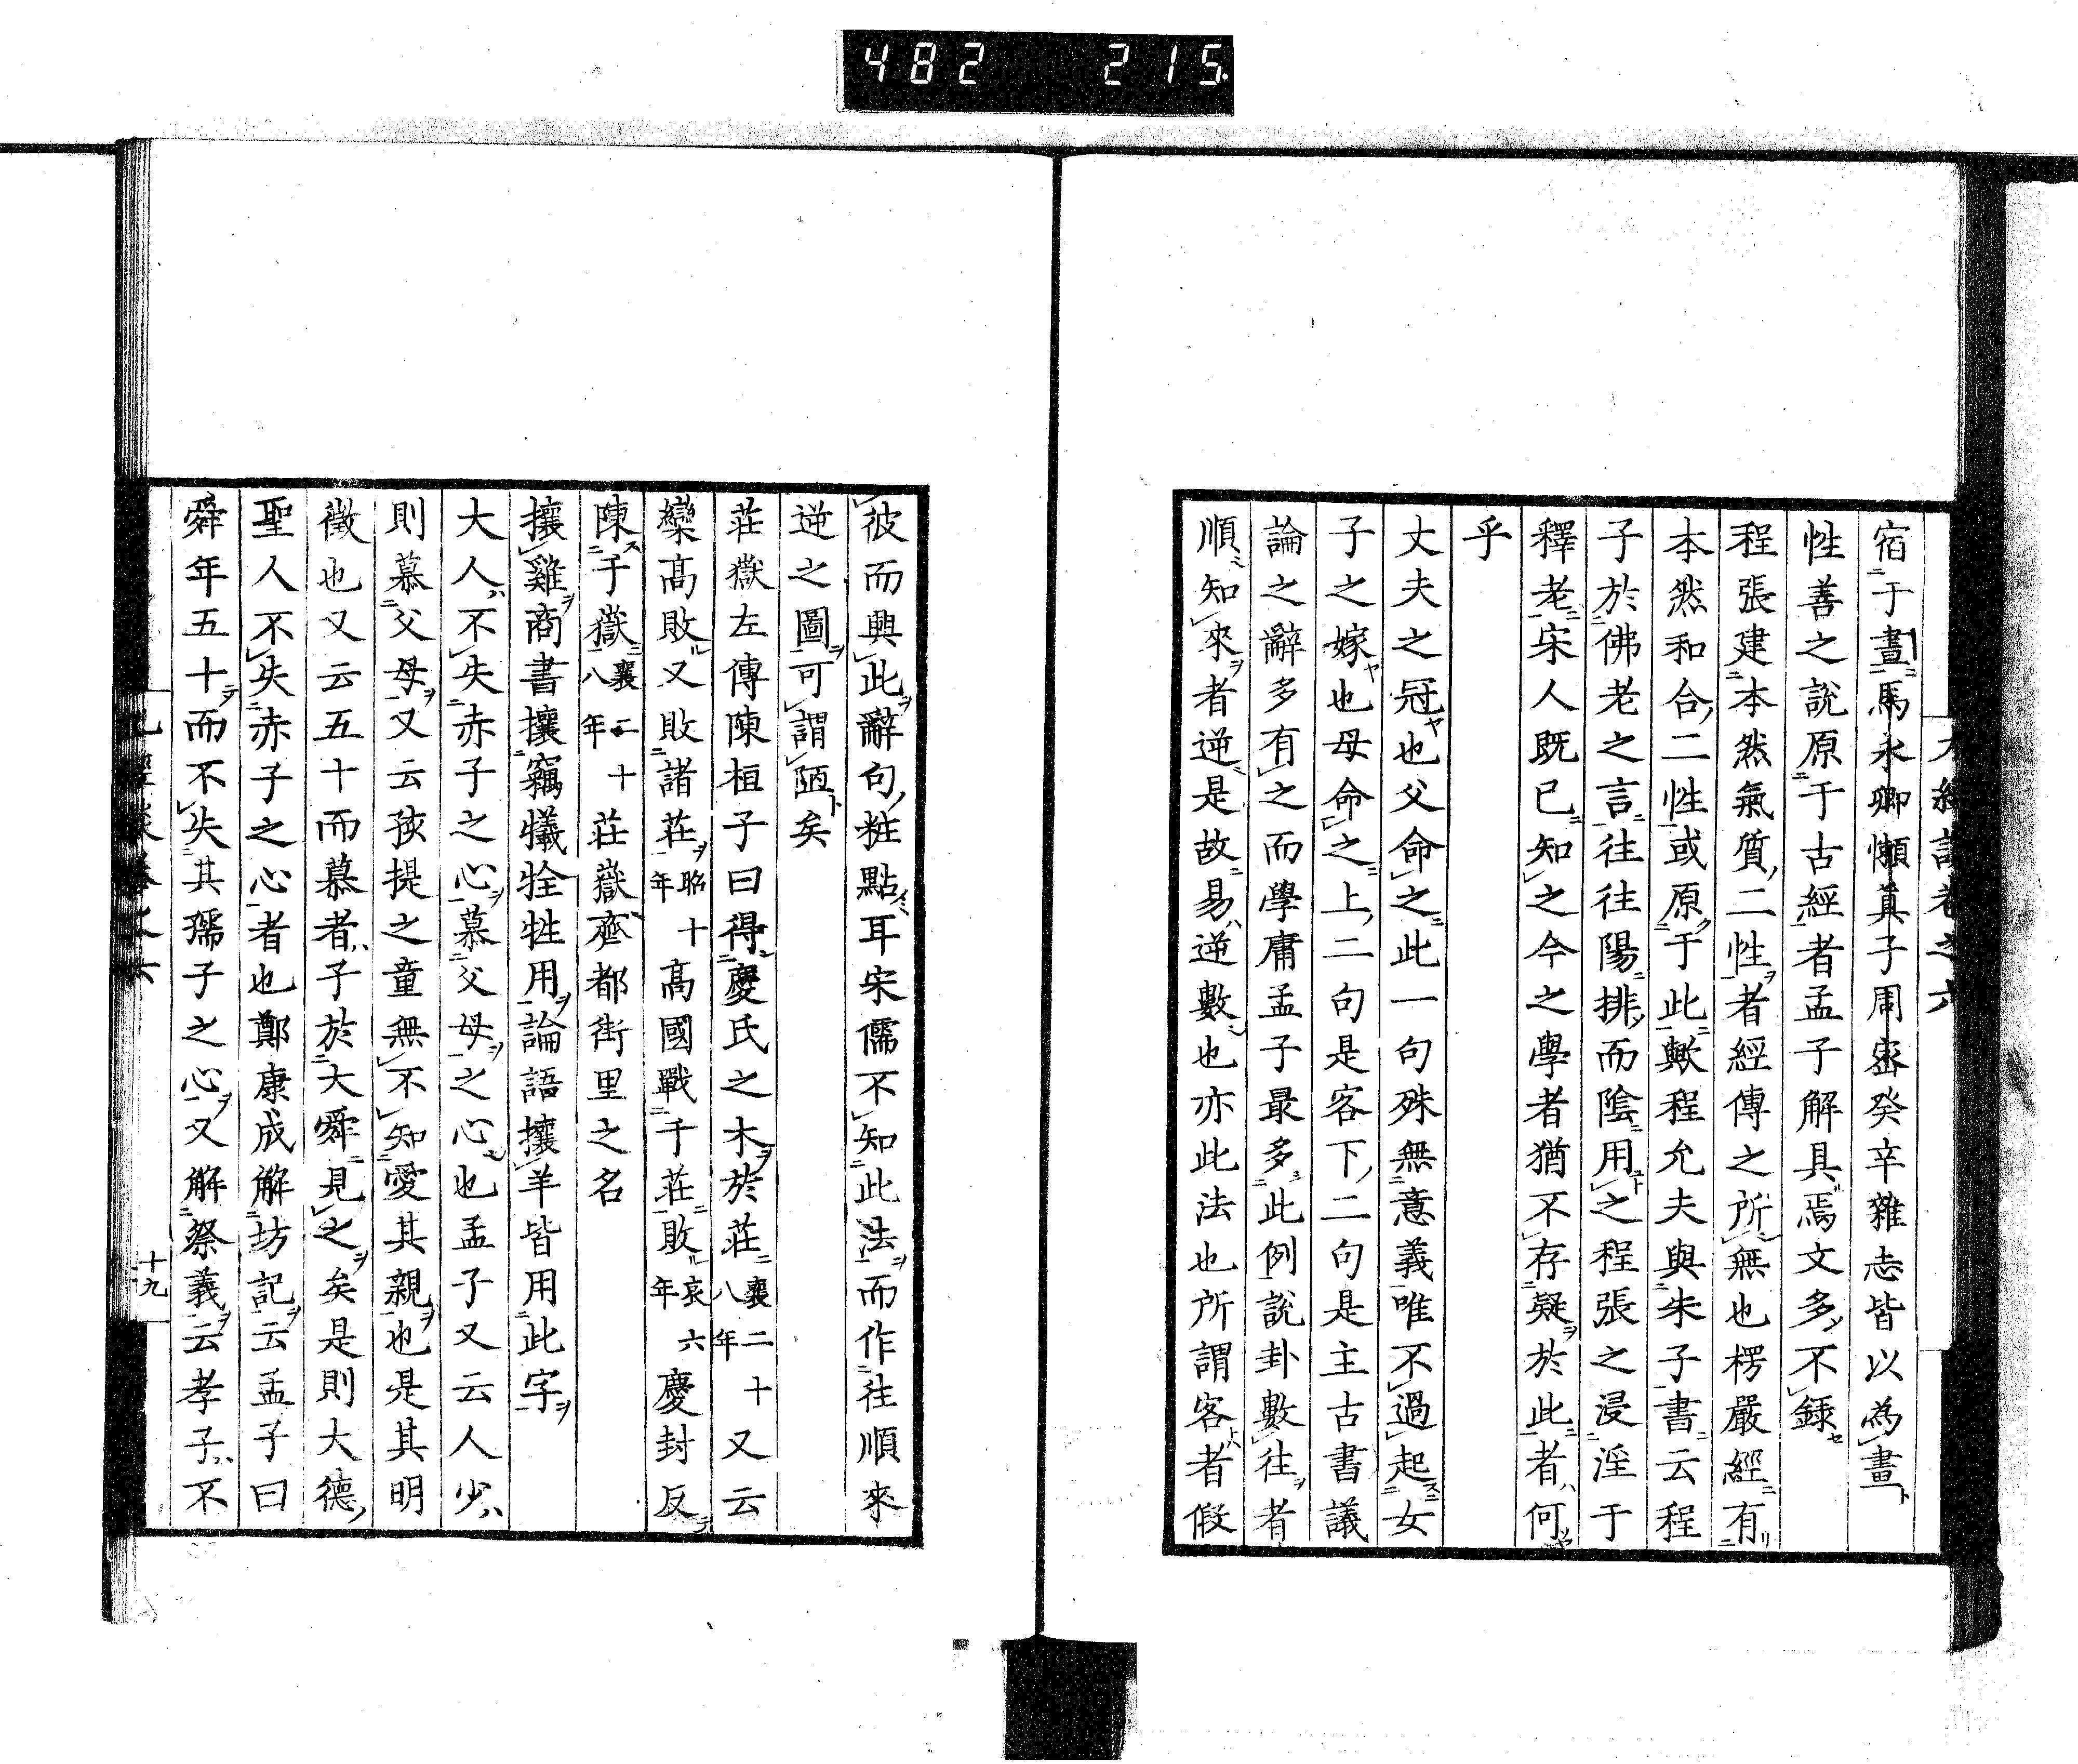 482 215
宿于晝馬永卿懶真子周密癸辛雜志皆以為晝
性善之說原于古經者孟子解具焉文多不錄
程張建本然氣質二性者經傳之所無也楞嚴經有
本然和合二性或原于此歟程允夫與朱子書云程
子於佛老之言往往陽排而陰用之程張之浸淫于
釋老宋人既已知之今之學者猶不存疑於此者何
乎
丈夫之冠也父命之此一句殊無意義唯不過起女
子之嫁也母命之上二句是客下二句是主古書議
論之辭多有之而學庸孟子最多此例說卦數往者
順知來者逆是故易逆數也亦此法也所謂客者假
彼而興此辭句粧點耳宋儒不知此法而作往順來
逆之圖可謂陋矣
莊嶽左傳陳桓子曰得慶氏之木於莊襄二十八年又云
欒高敗又敗諸莊昭十年高國戰于莊敗哀六年慶封反
陳于嶽襄二十八年莊嶽齊都街里之名
攘雞商書攘竊犠牷牲用論語攘羊皆用此字
大人不失赤子之心慕父母之心也孟子又云人少
則慕父母又云孩提之童無不知愛其親也是其明
徵也又云五十而慕者子於大舜見之矣是則大德
聖人不失赤子之心者也鄭康成解坊記云孟子曰
舜年五十而不失其孺子之心又解祭義云孝子不
十九